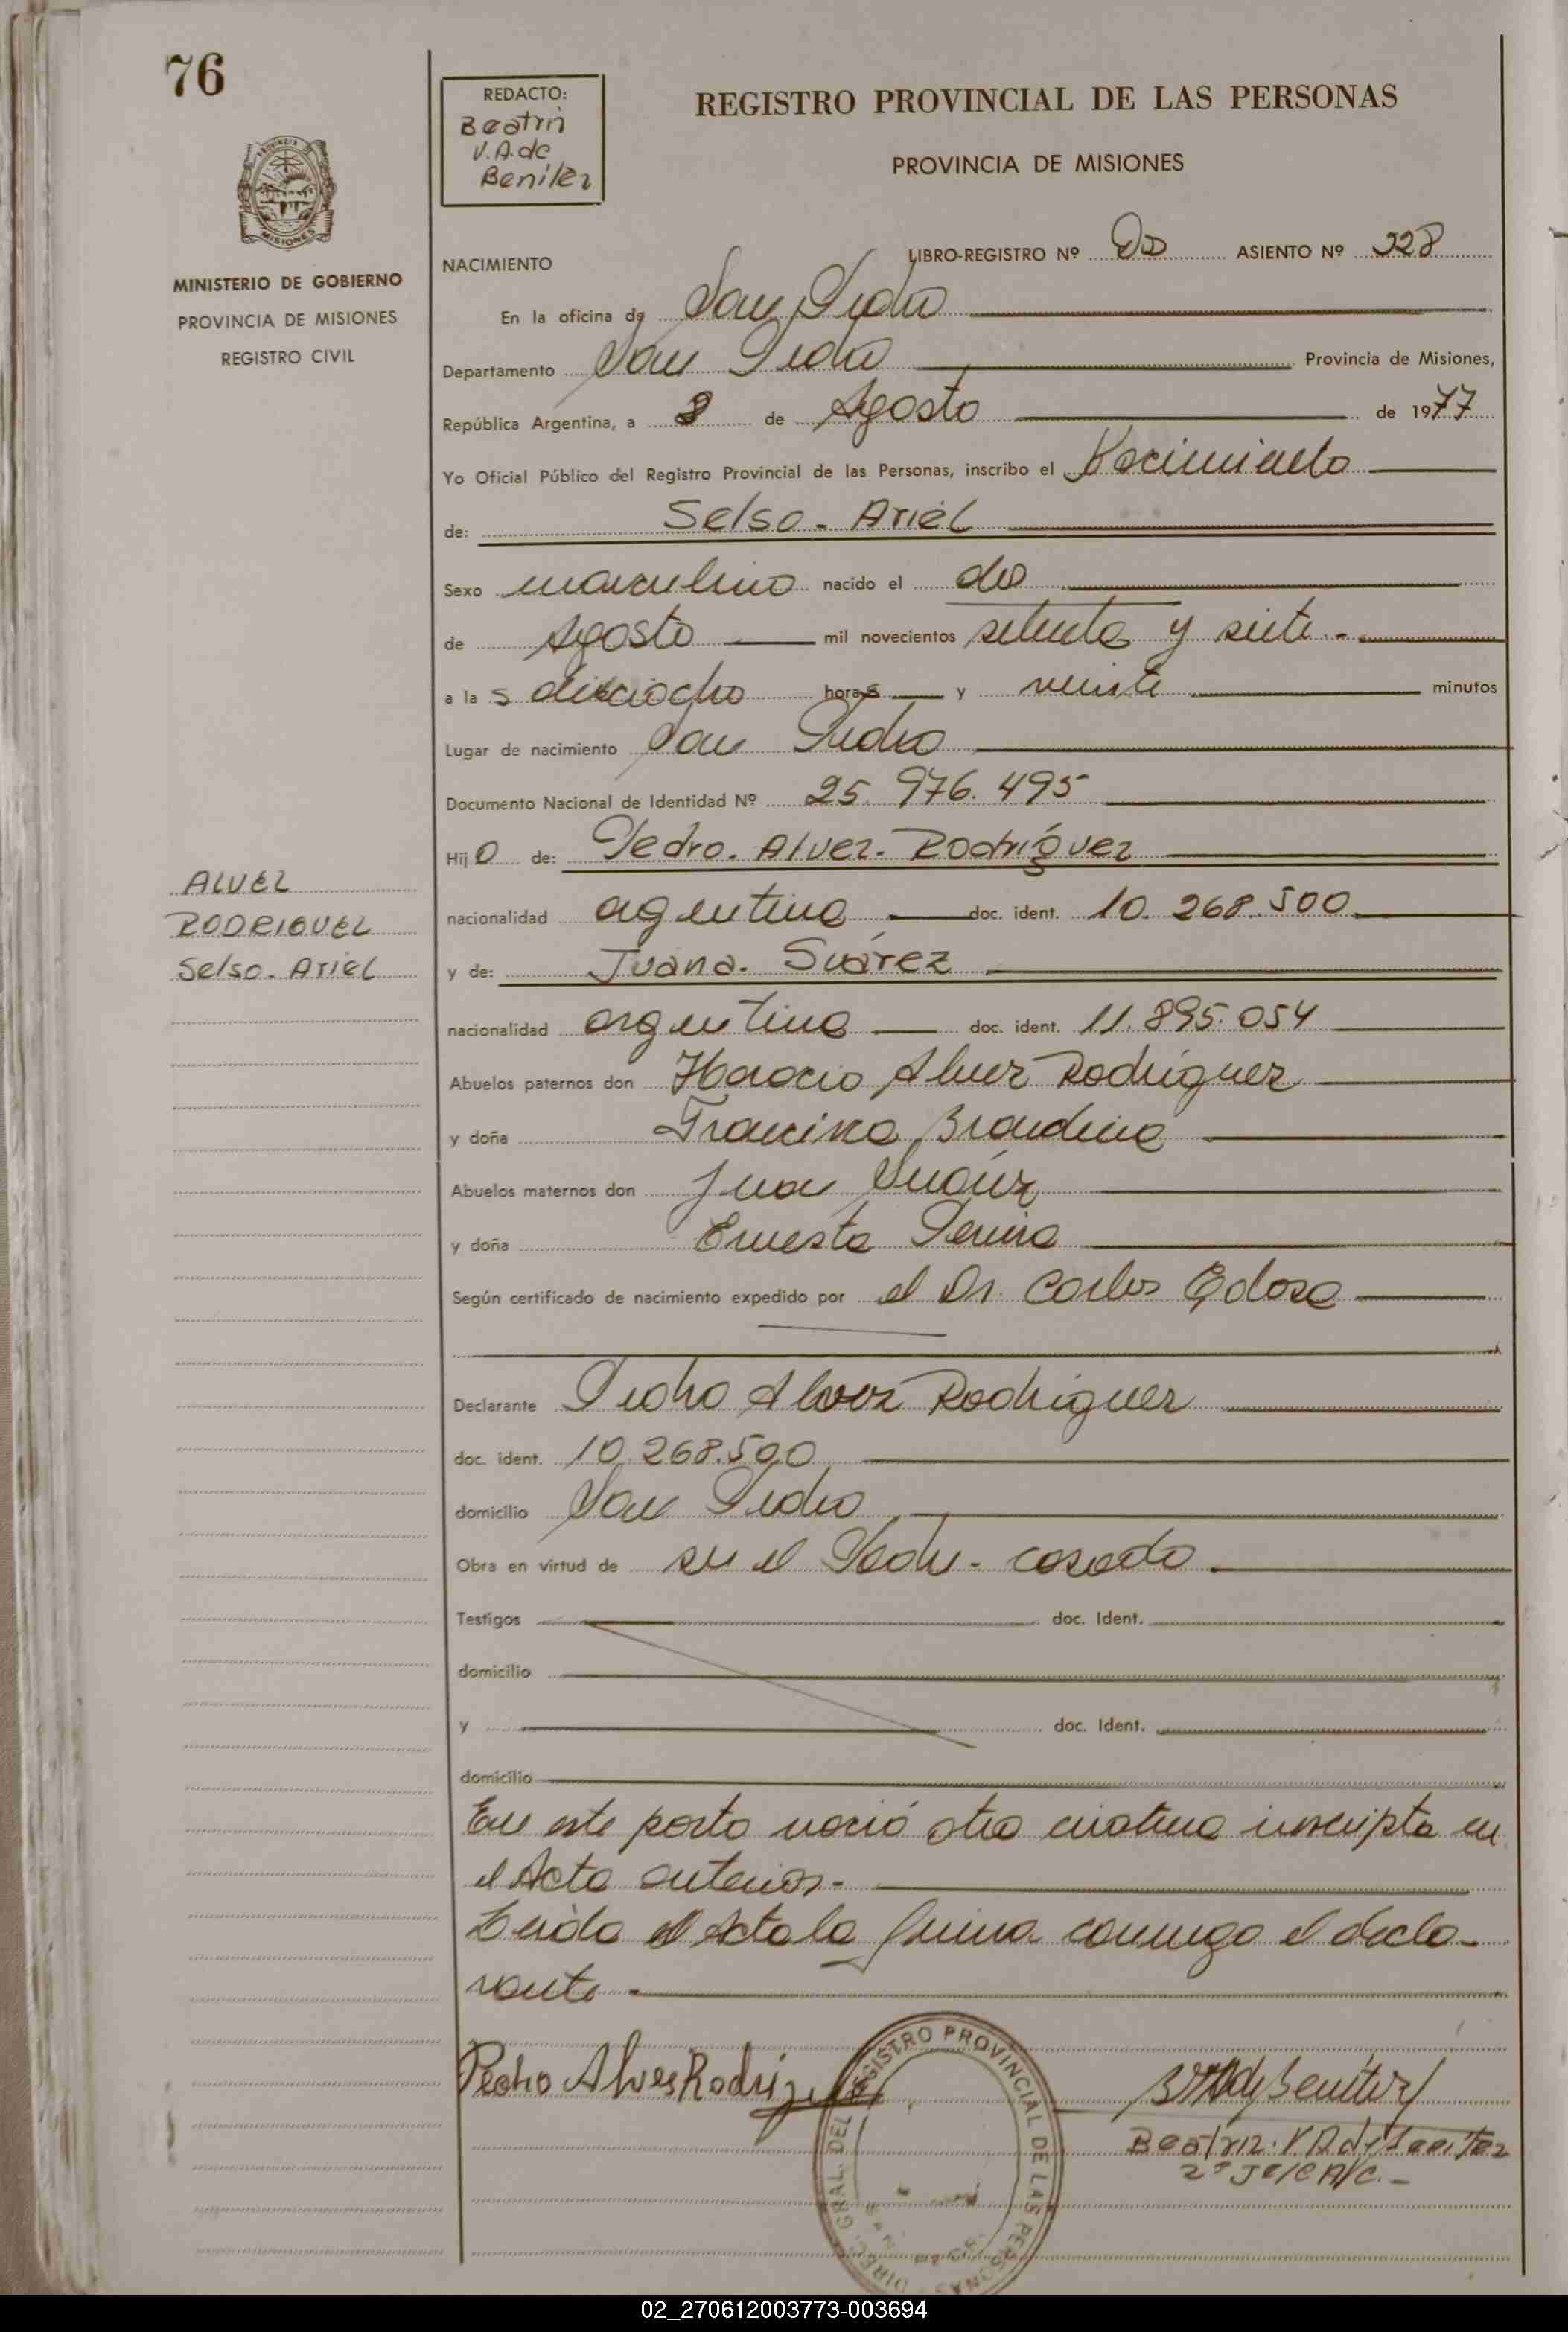 76
REDACTO:
Beatriz
V.A. de
Benitez
REGISTRO PROVINCIAL DE LAS PERSONAS
PROVINCIA DE MISIONES
MISIONES
MINISTERIO DE GOBIERNO
PROVINCIA DE MISIONES
REGISTRO CIVIL
NACIMIENTO
LIBRO-REGISTRO Nº Dos ASIENTO Nº 328
En la oficina de San Pedro
Departamento San Pedro Provincia de Misiones,
República Argentina, a 8 de Agosto de 1977
Yo Oficial Público del Registro Provincial de las Personas, inscribo el Nacimiento
de: Selso - Ariel
Sexo masculino nacido el dos
de Agosto mil novecientos setenta y siete.-
a las dieciocho horas y veinte minutos
Lugar de nacimiento San Pedro
Documento Nacional de Identidad Nº 25.976.495
Hijo de: Pedro. Alvez. Rodríguez
nacionalidad argentina doc. ident. 10.268.500
y de: Juana. Suárez
nacionalidad argentina doc. ident. 11.895.054
Abuelos paternos don Horacio Alvez Rodríguez
y doña Francisca Brandina
Abuelos maternos don Juan Suárez
y doña Ernesta
Según certificado de nacimiento expedido por el Dr. Carlos
Declarante Pedro Alvez Rodríguez
doc. ident. 10.268.500
domicilio San Pedro
Obra en virtud de ser el Padre - casado
Testigos doc. Ident.
domicilio
y doc. Ident.
domicilio
En este parto nació otra criatura inscripta en
el Acta anterior.-
Leida el Acta la firma conmigo el decla-
rante -
ALVEZ
RODRIGUEZ
Selso. Ariel
Pedro Alves Rodriguez
Beatriz. V A de Benitez
2º Jefe A/C.-
DIREC. GRAL. DEL REGISTRO PROVINCIAL DE LAS PERSONAS
02_270612003773-003694